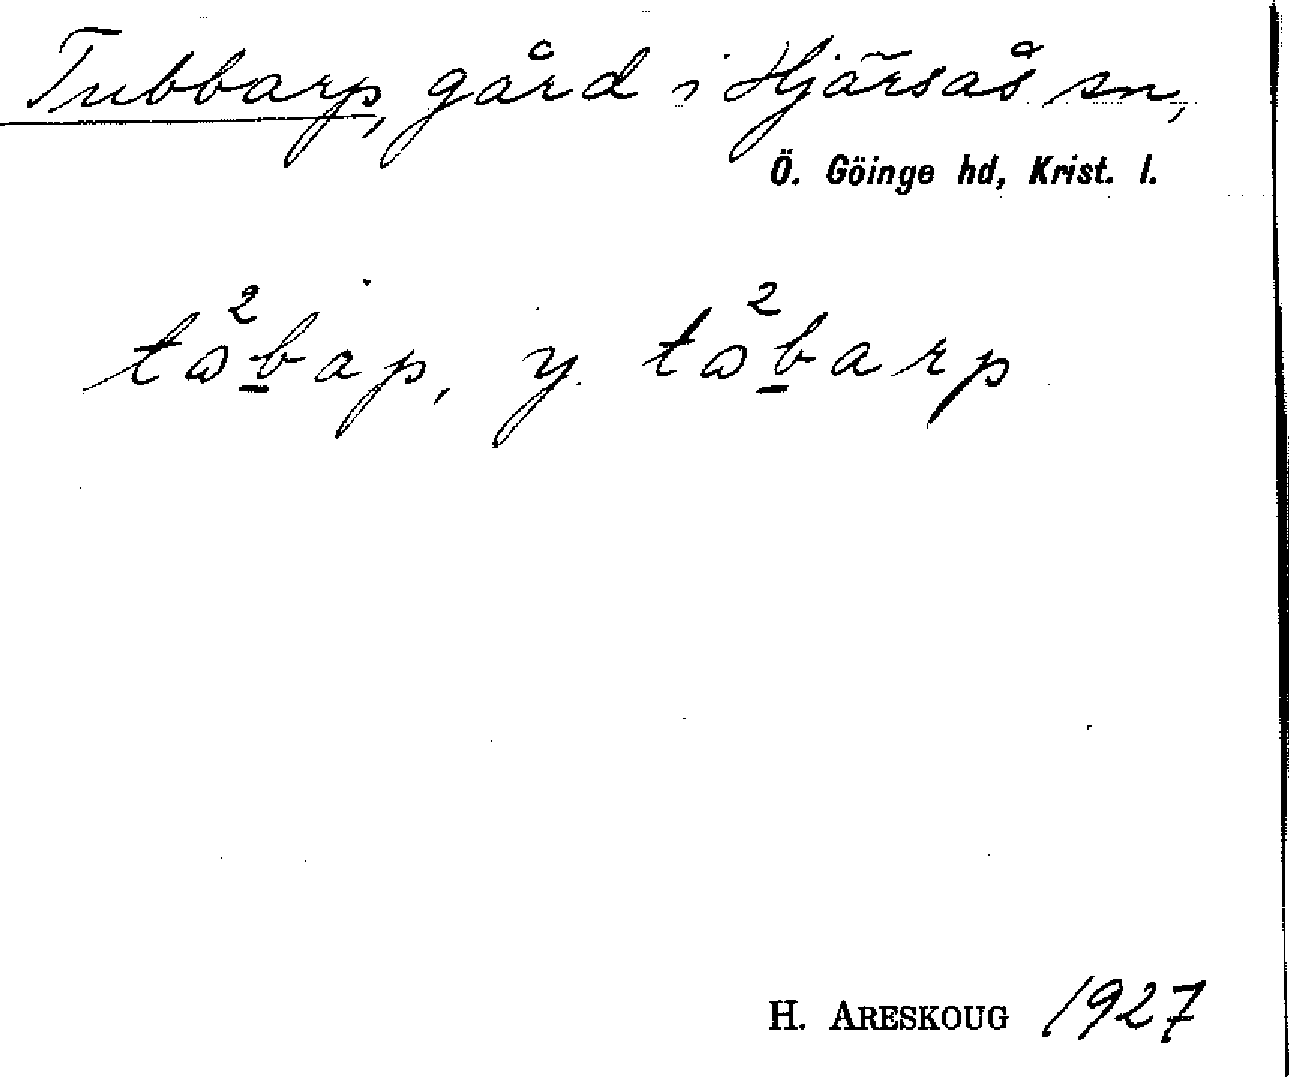 Tubbarp, gård i Hjärsås sn,
Ö. Göinge hd, Krist. l.
tɷ²b̲ap, y. tɷ²b̲arp
H. ARESKOUG 1927